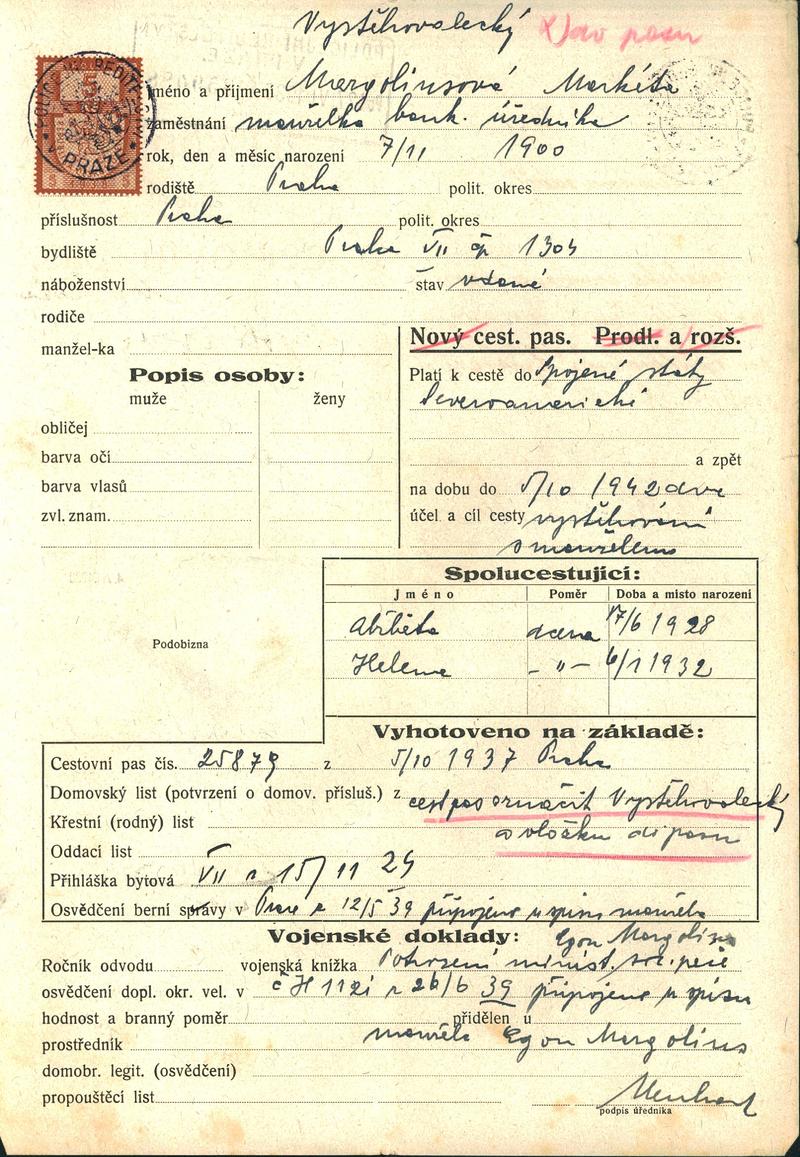 Vystěhovalecký
jméno a příjmení Margoliusová Markéta
zaměstnání manželka bank. úředníka
rok, den a měsíc narození 7/11 1900
rodiště Praha polit. okres
příslušnost Praha polit. okres
bydliště Praha VII čp 1304
náboženství stav vdaná
rodiče
manžel-ka
Nový cest. pas. Prodl. a rozš.
Popis osoby:
muže ženy
obličej
barva očí
barva vlasů
zvl. znam.
Platí k cestě do Spojené státy
Severoamerické
a zpět
na dobu do 5/10 1942
účel a cíl cesty vystěhování
s manželem
Spolucestující:
Jméno Poměr Doba a místo narození
Alžběta dcera 17/6 1928
Helena – „ – 6/1 1932
Podobizna
Vyhotoveno na základě:
Cestovní pas čís. 25879 z 5/10 1937 Praha
Domovský list (potvrzení o domov. přísluš.) z cest pas označit Vystěhovalecký
Křestní (rodný) list a vložku do pasu
Oddací list
Přihláška bytová VII z 15/11 29
Osvědčení berní správy v Praze z 12/5 39 připojeno u spisu manžela
Vojenské doklady: Egon Margolius
Ročník odvodu vojenská knížka Potvrzení minist. soc. péče
osvědčení dopl. okr. vel. v č H 1121 z 26/6 39 připojeno u spisu
hodnost a branný poměr přidělen u
prostředník manžela Egon Margolius
domobr. legit. (osvědčení)
propouštěcí list
podpis úředníka